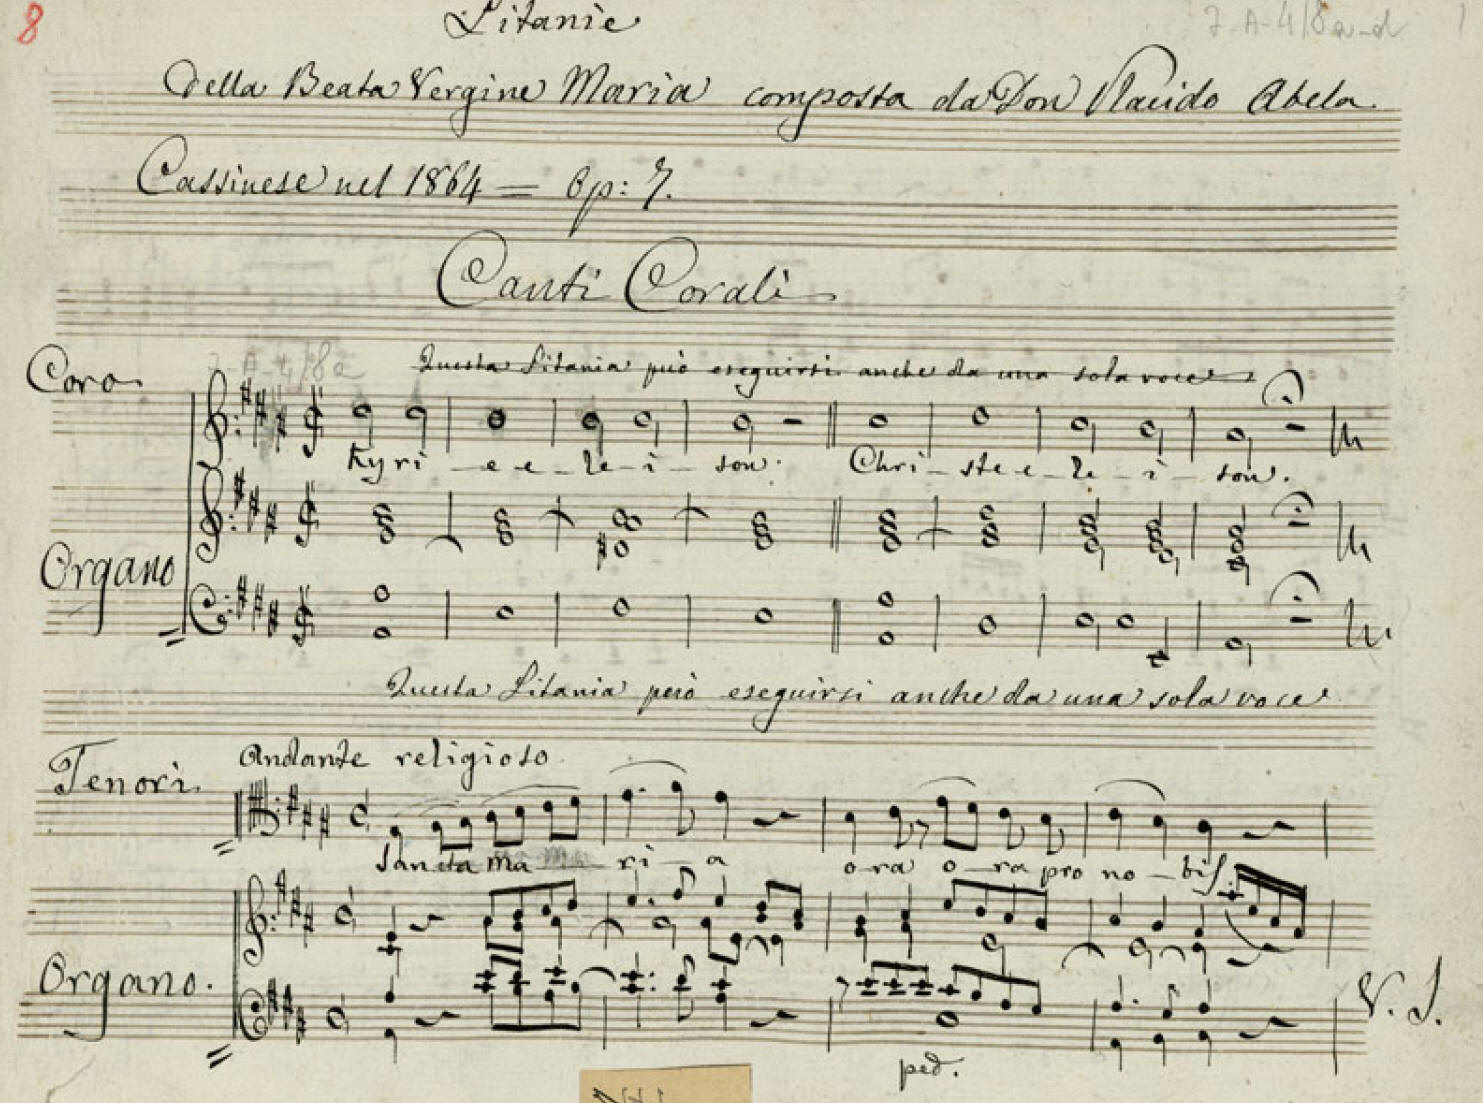 8
Litanie
7-A-4/8a-d
1
della Beata Vergine Maria composta da Don Placido Abela
Cassinese nel 1864 = Op: 7.
Canti Corali
7-A-4/8a
Questa Litania può eseguirsi anche da una sola voce
Coro
Kyri - e e - le - i - son. Chri - ste e - le - i - son.
Organo
Questa Litania però eseguirsi anche da una sola voce
Andante religioso
Tenori.
Sancta Ma - ri - a o - ra o - ra pro no - bis
Organo.
V. S.
ped.